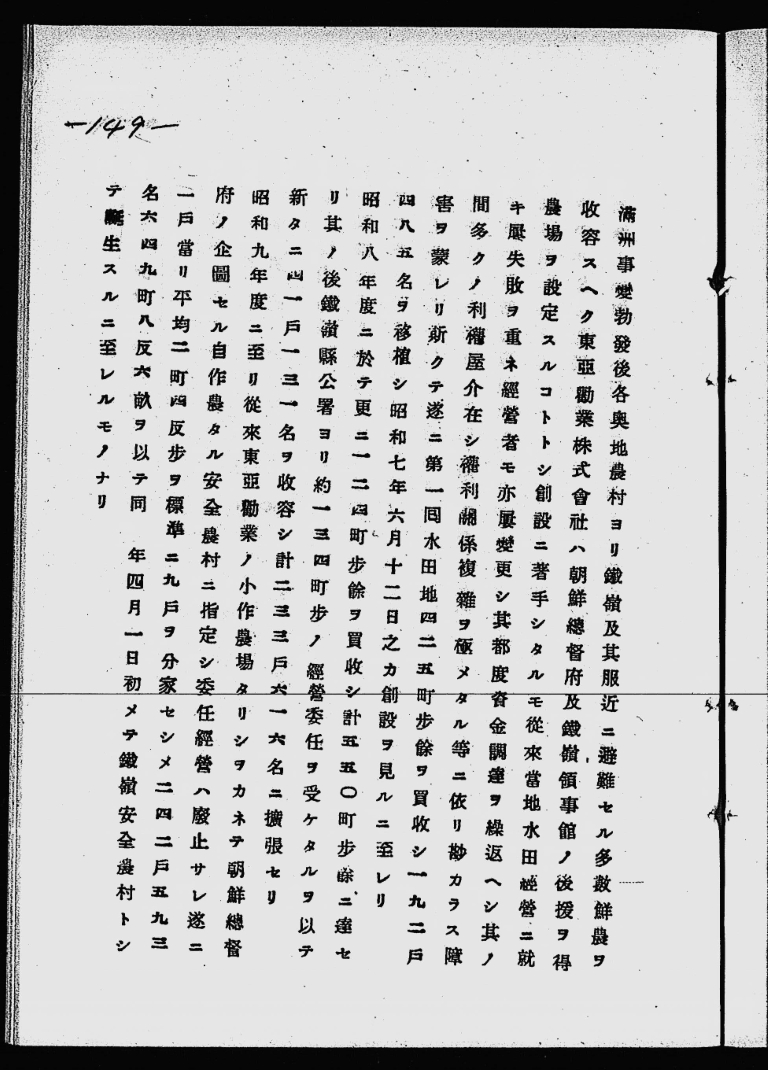 -149-
滿洲事變勃發後各奧地農村ヨリ鐵嶺及其服近ニ避難セル多數鮮農ヲ
收容スヘク東亞勸業株式會社ハ朝鮮總督府及鐵嶺領事館ノ後援ヲ得
農場ヲ設定スルコトトシ創設ニ著手シタルモ從來當地水田經營ニ就
キ屢失敗ヲ重ネ經營者モ亦屢變更シ其都度資金調達ヲ繰返ヘシ其ノ
間多クノ利權屋介在シ權利關係複雜ヲ極メタル等ニ依リ尠カラス障
害ヲ蒙レリ斯クテ遂ニ第一囘水田地四二五町步餘ヲ買收シ一九二戶
四八五名ヲ移植シ昭和七年六月十二日之カ創設ヲ見ルニ至レリ
昭和八年度ニ於テ更ニ一二四町步餘ヲ買收シ計五五〇町步餘ニ達セ
リ其ノ後鐵嶺縣公署ヨリ約一三四町步ノ經營委任ヲ受ケタルヲ以テ
新タニ四一戶一三一名ヲ收容シ計二三三戶六一六名ニ擴張セリ
昭和九年度ニ至リ從來東亞勸業ノ小作農場タリシヲカネテ朝鮮總督
府ノ企圖セル自作農タル安全農村ニ指定シ委任經營ハ廢止サレ遂ニ
一戶當リ平均二町四反步ヲ標準ニ九戶ヲ分家セシメ二四二戶五九三
名六四九町八反六畝ヲ以テ同 年四月一日初メテ鐵嶺安全農村トシ
テ誕生スルニ至レルモノナリ